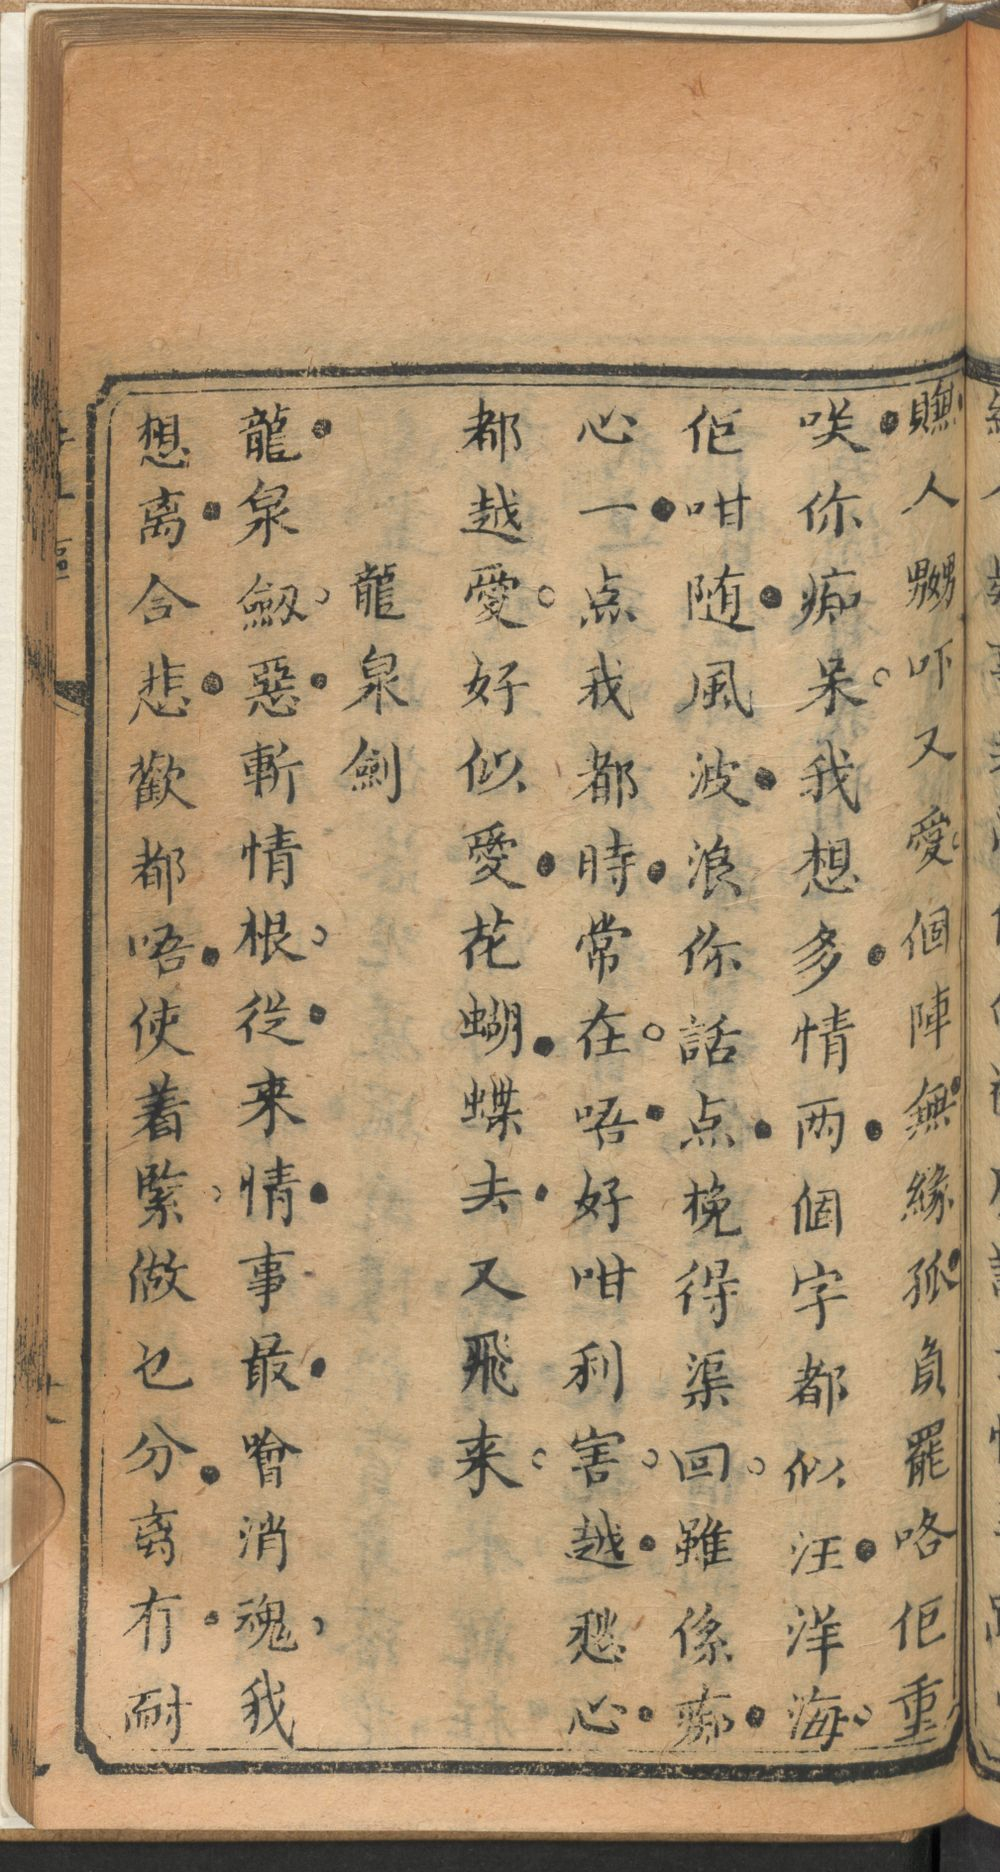 賺人嬲吓又愛個陣無緣孤負罷咯佢重
唉你痴呆我想多情两個字都似汪洋海
佢咁随風波浪你話点挽得渠回雖係痴
心一点我都時常在唔好咁利害越愁心
都越愛好似愛花蝴蝶去又飛来
龍泉劍
龍泉劔惡斬情根従来情事最噲消魂我
想离合悲歡都唔使着緊做乜分离冇耐